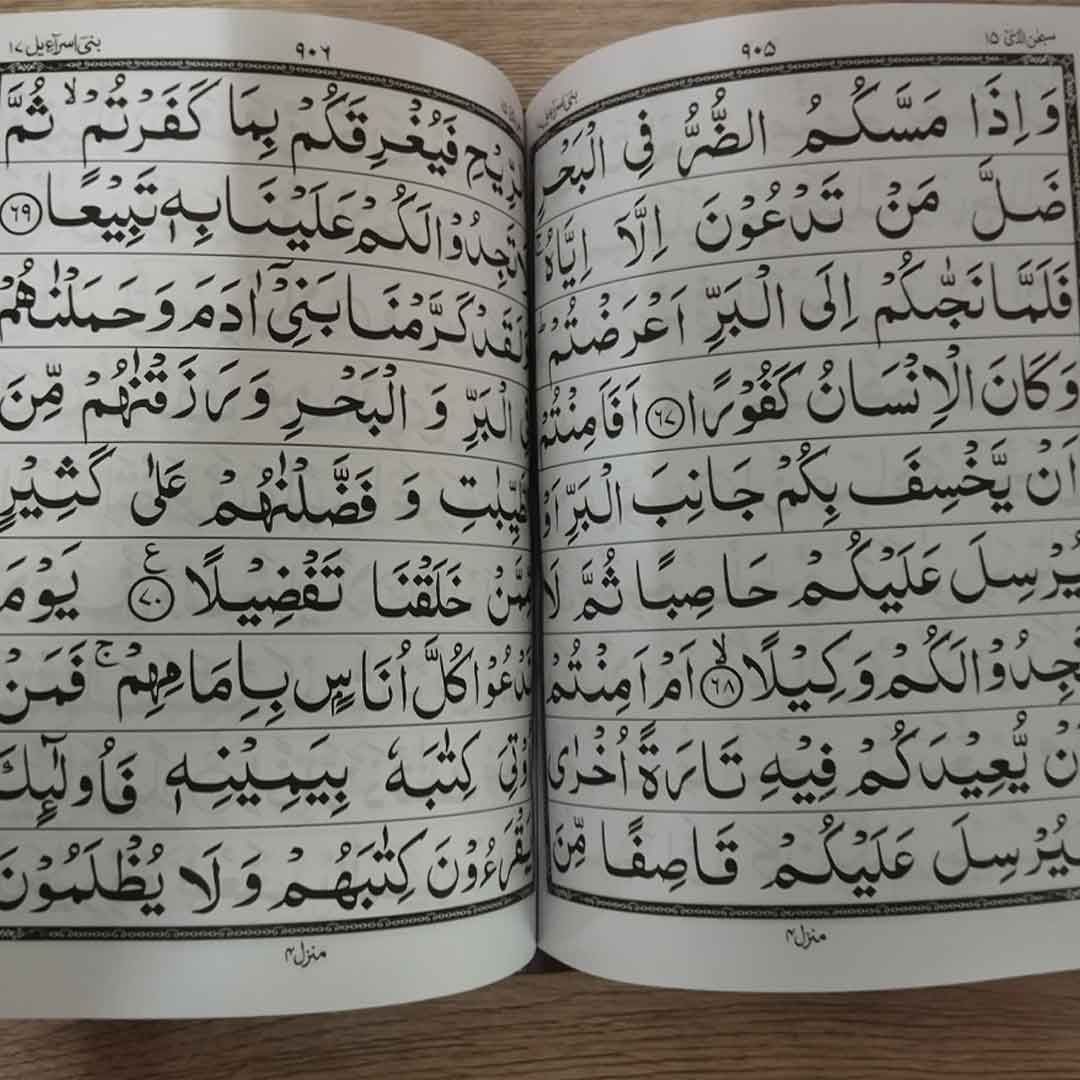 سبحٰن الذیٓ ۱۵
۹۰۵
بنیٓ اسرآءیل ۱۷
وَاِذَا مَسَّكُمُ الضُّرُّ فِى الْبَحْرِ
ضَلَّ مَنْ تَدْعُوْنَ اِلَّاۤ اِيَّاهُ ۚ
فَلَمَّا نَجّٰىكُمْ اِلَى الْبَرِّ اَعْرَضْتُمْ ؕ
وَكَانَ الْاِنْسَانُ كَفُوْرًا ﴿۶۷﴾ اَفَاَمِنْتُمْ
اَنْ يَّخْسِفَ بِكُمْ جَانِبَ الْبَرِّ اَوْ
يُرْسِلَ عَلَيْكُمْ حَاصِبًا ثُمَّ لَا
تَجِدُوْا لَكُمْ وَكِيْلًا ۙ﴿۶۸﴾ اَمْ اَمِنْتُمْ
اَنْ يُّعِيْدَكُمْ فِيْهِ تَارَةً اُخْرٰى
فَيُرْسِلَ عَلَيْكُمْ قَاصِفًا مِّنَ
منزل ۴
۹۰۶
بنیٓ اسرآءیل ۱۷
الرِّيْحِ فَيُغْرِقَكُمْ بِمَا كَفَرْتُمْ ۙ ثُمَّ
لَا تَجِدُوْا لَكُمْ عَلَيْنَا بِهٖ تَبِيْعًا ﴿۶۹﴾
وَلَقَدْ كَرَّمْنَا بَنِىْۤ اٰدَمَ وَحَمَلْنٰهُمْ
فِى الْبَرِّ وَ الْبَحْرِ وَرَزَقْنٰهُمْ مِّنَ
الطَّيِّبٰتِ وَ فَضَّلْنٰهُمْ عَلٰى كَثِيْرٍ
مِّمَّنْ خَلَقْنَا تَفْضِيْلًا ﴿۷۰﴾ ع يَوْمَ
نَدْعُوْا كُلَّ اُنَاسٍۭ بِاِمَامِهِمْ ۚ فَمَنْ
اُوْتِىَ كِتٰبَهٗ بِيَمِيْنِهٖ فَاُولٰٓٮِٕكَ
يَقْرَءُوْنَ كِتٰبَهُمْ وَلَا يُظْلَمُوْنَ
منزل ۴